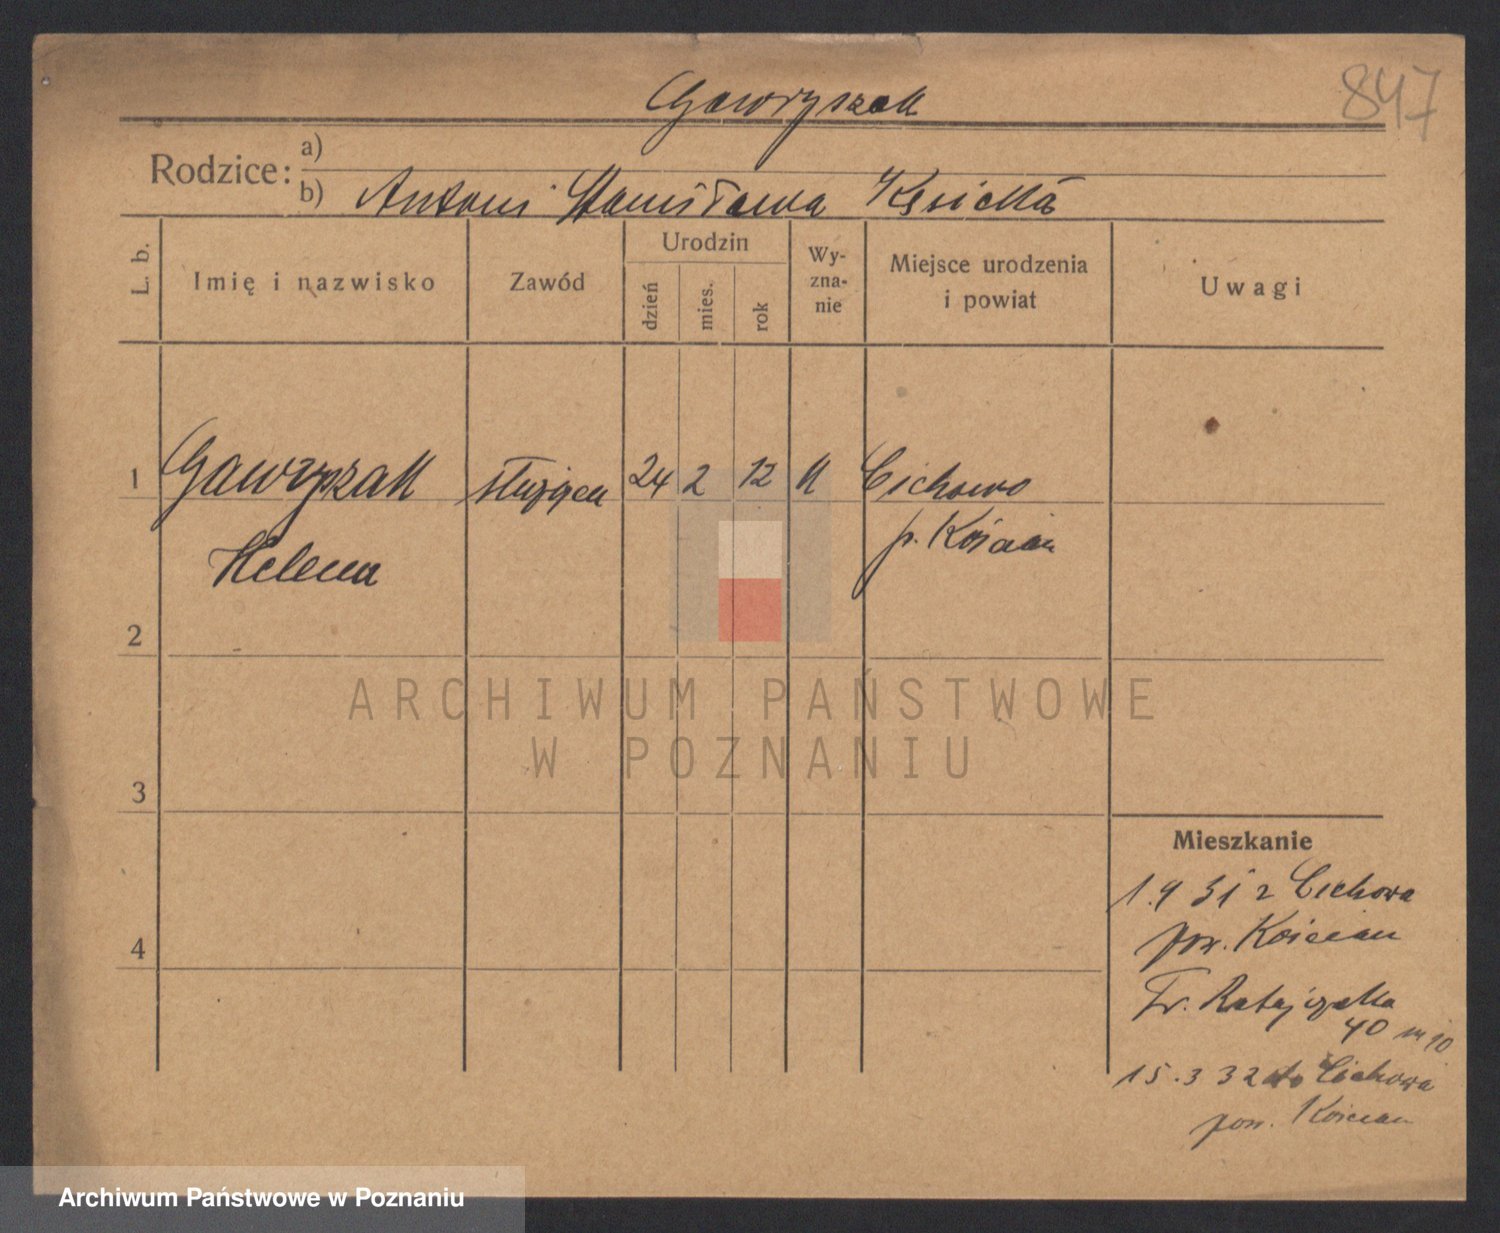 847
Gawryszak
Rodzice: a)
b) Antoni Stanisława Kęsicka
L. b.
Imię i nazwisko
Zawód
Urodzin
dzień
mies.
rok
Wy-
zna-
nie
Miejsce urodzenia
i powiat
Uwagi
1 Gawryszak służąca 24 2 12 k Cichowo
Helena p. Kościan
2
ARCHIWUM PAŃSTWOWE
W POZNANIU
3
Mieszkanie
1.9 31 z Cichowa
pow. Kościan
4
Fr. Ratajczaka
40 m 10
15.3 32 do Cichowa
pow. Kościan
Archiwum Państwowe w Poznaniu